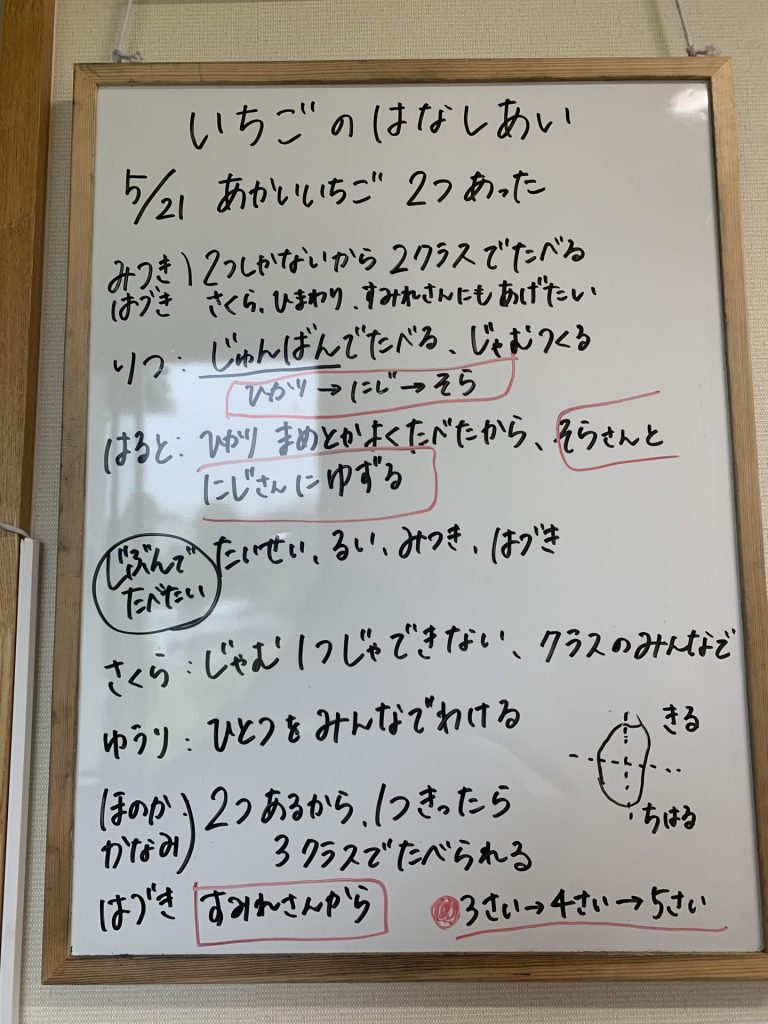 いちごのはなしあい
5/21 あかいいちご 2つあった
みつき 2つしかないから 2クラスでたべる
はづき さくら、ひまわり、すみれさんにもあげたい
りつ: じゅんばんでたべる、じゃむつくる
ひかり→にじ→そら
はると: ひかり まめとかよくたべたから、そらさんと
にじさんにゆずる
じぶんで
たべたい
たいせい、るい、みつき、はづき
さくら: じゃむ 1つじゃできない、クラスのみんなで
ゆうり: ひとつをみんなでわける
きる
ちはる
ほのか 2つあるから、1つきったら
かなみ 3クラスでたべられる
はづき すみれさんから
3さい→4さい→5さい